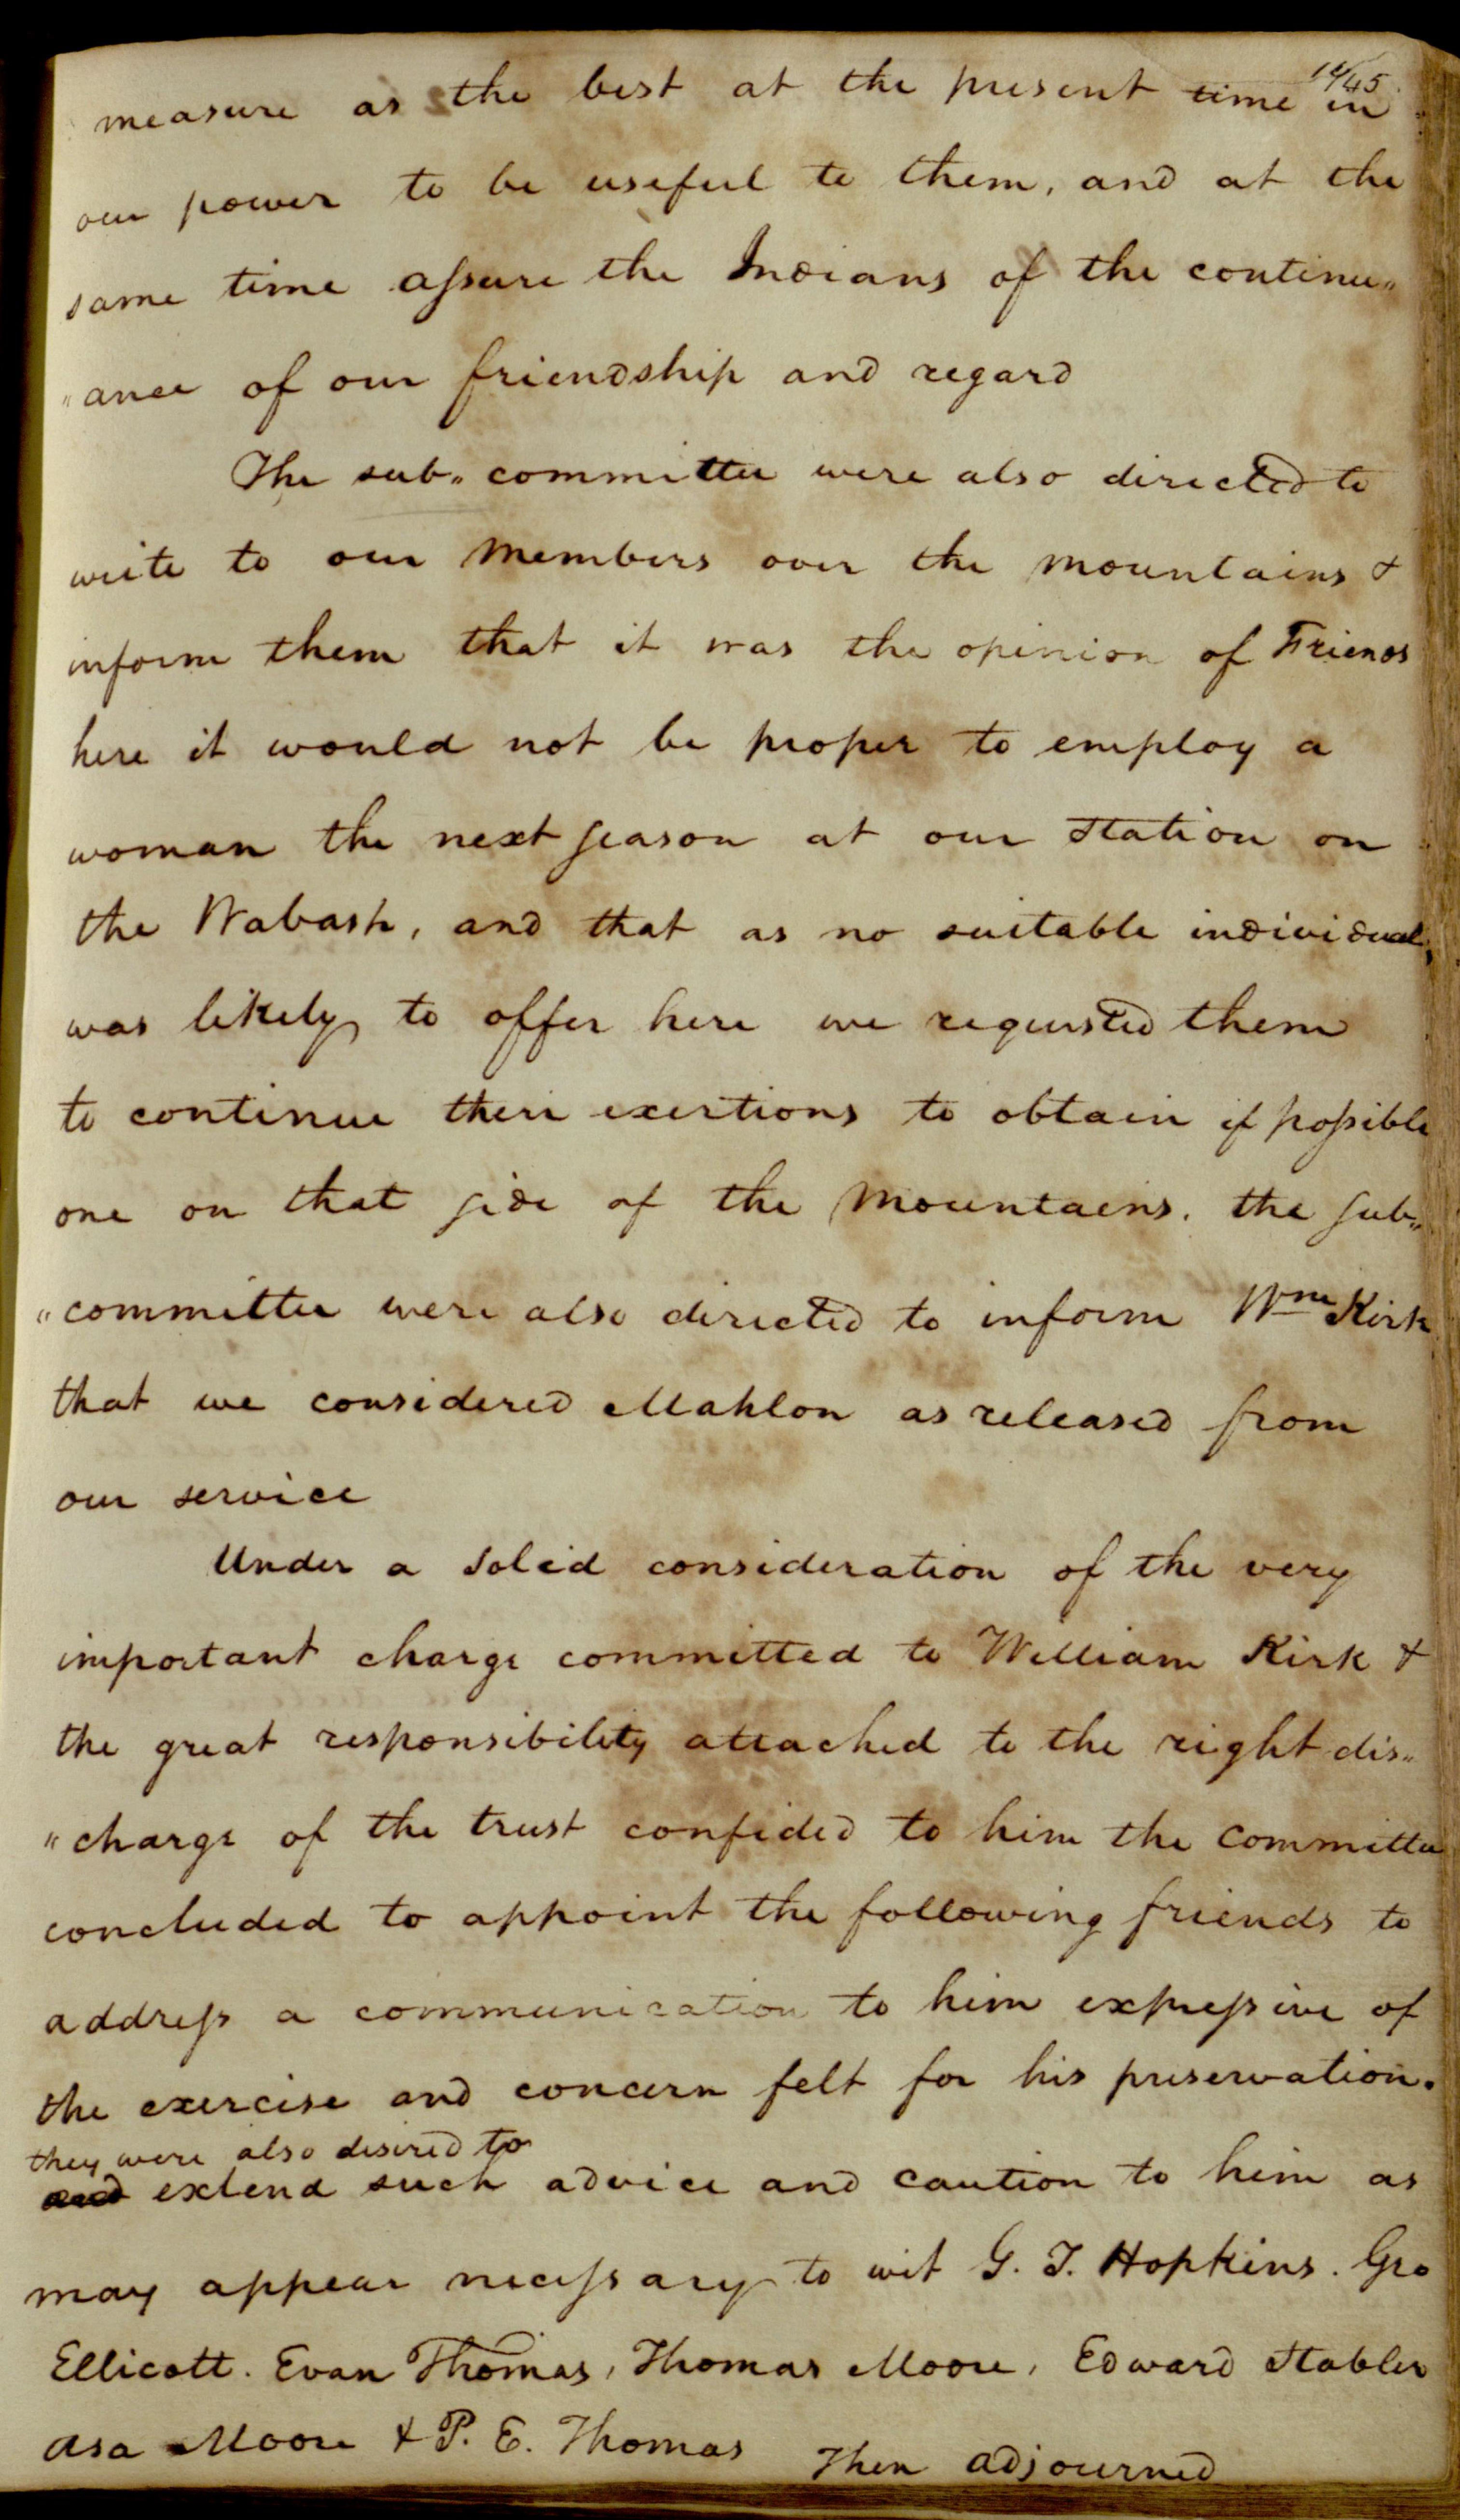 145
measure as the best at the present time in
our power to be useful to them, and at the
same time assure the Indians of the continu„
„ance of our friendship and regard
The sub„committee were also directed to
write to our Members over the mountains &
inform them that it was the opinion of Friends
here it would not be proper to employ a
woman the next season at our Station on
the Wabash, and that as no suitable individual,
was likely to offer here we requested them
to continue their exertions to obtain if possible
one on that side of the Mountains. the sub„
„committee were also directed to inform Wm Kirk
that we considered Mahlon as released from
our service
Under a solid consideration of the very
important charge committed to William Kirk &
the great responsibility attached to the right dis„
„charge of the trust confided to him the Committee
concluded to appoint the following friends to
address a communication to him expressive of
the exercise and concern felt for his preservation.
they were also desired to
and extend such advice and caution to him as
may appear necessary to wit G. T. Hopkins. Geo
Ellicott. Evan Thomas, Thomas Moore, Edward Stabler
Asa Moore & P. E. Thomas Then adjourned